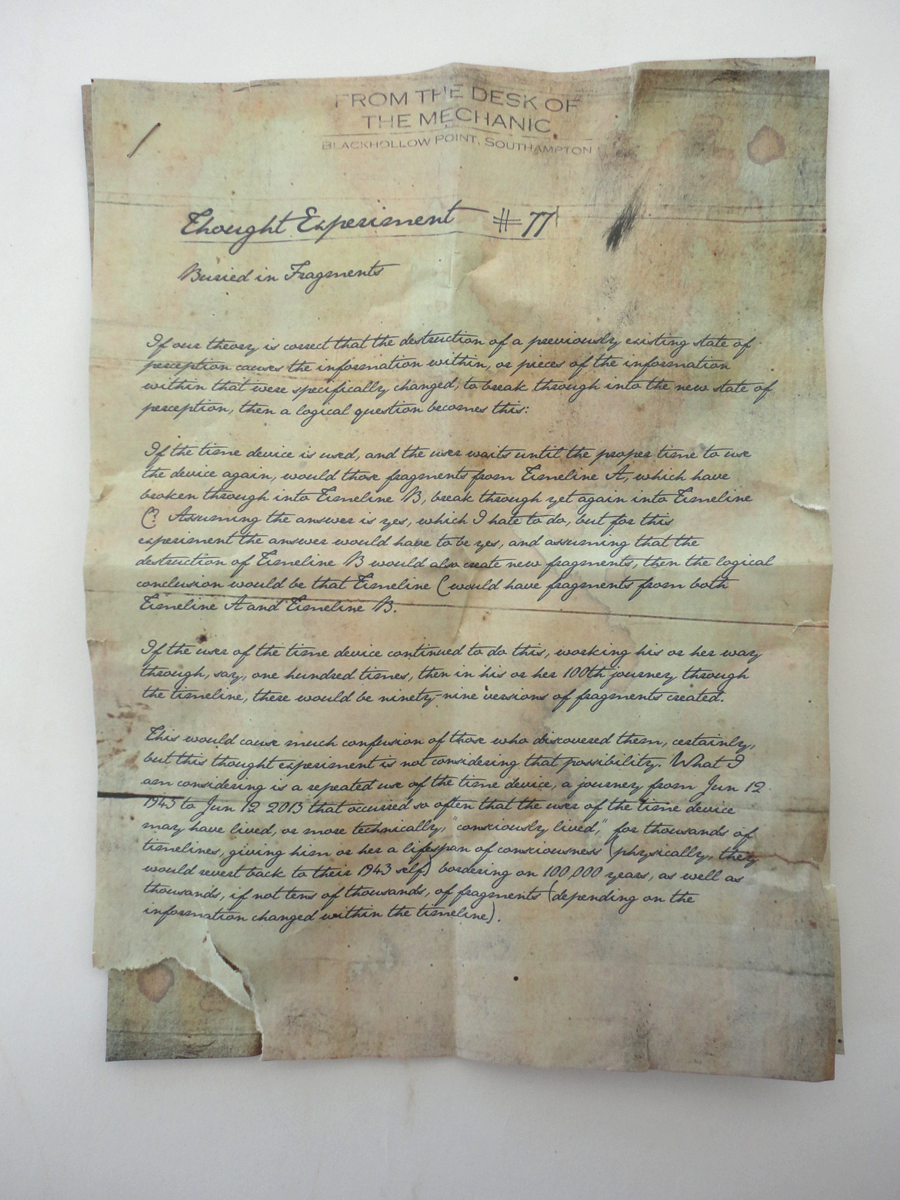 FROM THE DESK OF
THE MECHANIC
BLACKHOLLOW POINT, SOUTHAMPTON
Thought Experiment #77
Buried in Fragments
If our theory is correct that the destruction of a previously existing state of
perception causes the information within, or pieces of the information
within that were specifically changed, to break through into the new state of
perception, then a logical question becomes this:
If the time device is used, and the user waits until the proper time to use
the device again, would those fragments from Timeline A, which have
broken through into Timeline B, break through yet again into Timeline
C? Assuming the answer is yes, which I hate to do, but for this
experiment the answer would have to be yes, and assuming that the
destruction of Timeline B would also create new fragments, then the logical
conclusion would be that Timeline C would have fragments from both
Timeline A and Timeline B.
If the user of the time device continued to do this, working his or her way
through, say, one hundred times, then in his or her 100th journey through
the timeline, there would be ninety-nine versions of fragments created.
This would cause much confusion of those who discovered them, certainly,
but this thought experiment is not considering that possibility. What I
am considering is a repeated use of the time device, a journey from Jun 12
1943 to Jun 12 2013 that occured so often that the user of the time device
may have lived, or more technically, "consciously lived," for thousands of
timelines, giving him or her a lifespan of consciousness (physically, they
would revert back to their 1943 self) bordering on 100,000 years, as well as
thousands, if not tens of thousands, of fragments (depending on the
information changed within the timeline).